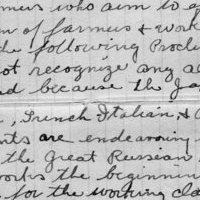 mers who aim to a
n of farmers & work
the following Procl
not recognize any al
d because the Ja
, French Italian, &
nts are endeavoring
the Great Russian
works the beginnin
e for the working cla